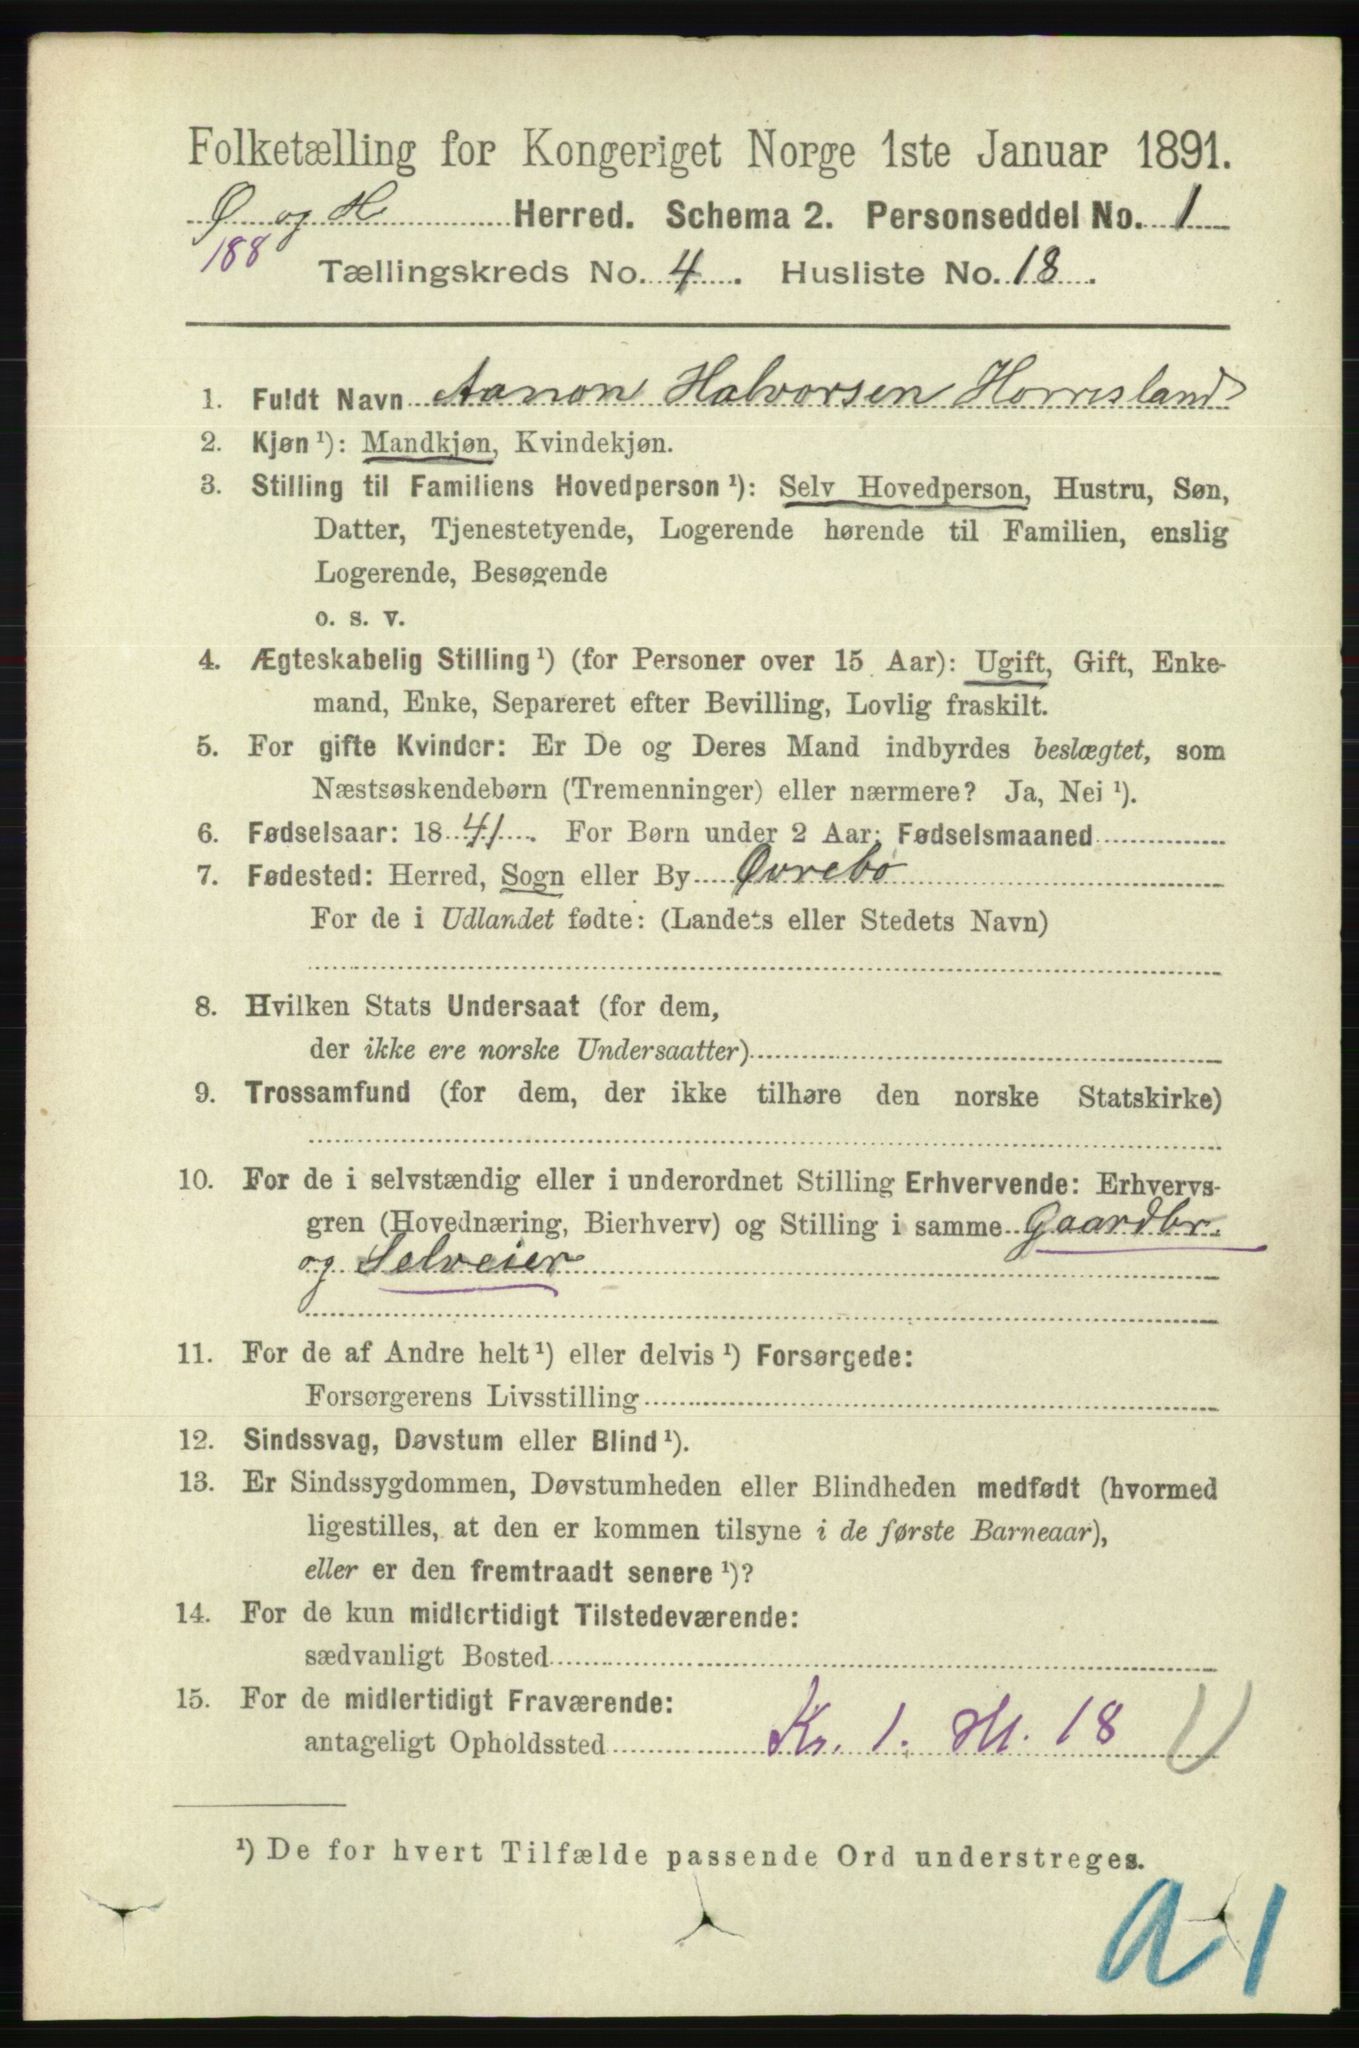 Folketælling for Kongeriget Norge 1ste Januar 1891.
Ø og H Herred. Schema 2. Personseddel No. 1
188
Tællingskreds No. 4. Husliste No. 18.
1. Fuldt Navn Aanon Halvorsen Horrisland
2. Kjøn ¹): Mandkjøn, Kvindekjøn.
3. Stilling til Familiens Hovedperson ¹): Selv Hovedperson, Hustru, Søn,
Datter, Tjenestetyende, Logerende hørende til Familien, enslig
Logerende, Besøgende
o. s. v.
4. Ægteskabelig Stilling ¹) (for Personer over 15 Aar): Ugift, Gift, Enke-
mand, Enke, Separeret efter Bevilling, Lovlig fraskilt.
5. For gifte Kvinder: Er De og Deres Mand indbyrdes beslægtet, som
Næstsøskendebørn (Tremenninger) eller nærmere? Ja, Nei ¹).
6. Fødselsaar: 1841. For Børn under 2 Aar: Fødselsmaaned
7. Fødested: Herred, Sogn eller By Øvrebø
For de i Udlandet fødte: (Landets eller Stedets Navn)
8. Hvilken Stats Undersaat (for dem,
der ikke ere norske Undersaatter)
9. Trossamfund (for dem, der ikke tilhøre den norske Statskirke)
10. For de i selvstændig eller i underordnet Stilling Erhvervende: Erhvervs-
gren (Hovednæring, Bierhverv) og Stilling i samme Gaardbr.
og Selveier
11. For de af Andre helt ¹) eller delvis ¹) Forsørgede:
Forsørgerens Livsstilling
12. Sindssvag, Døvstum eller Blind ¹).
13. Er Sindssygdommen, Døvstumheden eller Blindheden medfødt (hvormed
ligestilles, at den er kommen tilsyne i de første Barneaar),
eller er den fremtraadt senere ¹)?
14. For de kun midlertidigt Tilstedeværende:
sædvanligt Bosted
15. For de midlertidigt Fraværende:
antageligt Opholdssted Kr. 1. Hl. 18
¹) De for hvert Tilfælde passende Ord understreges.
a 1